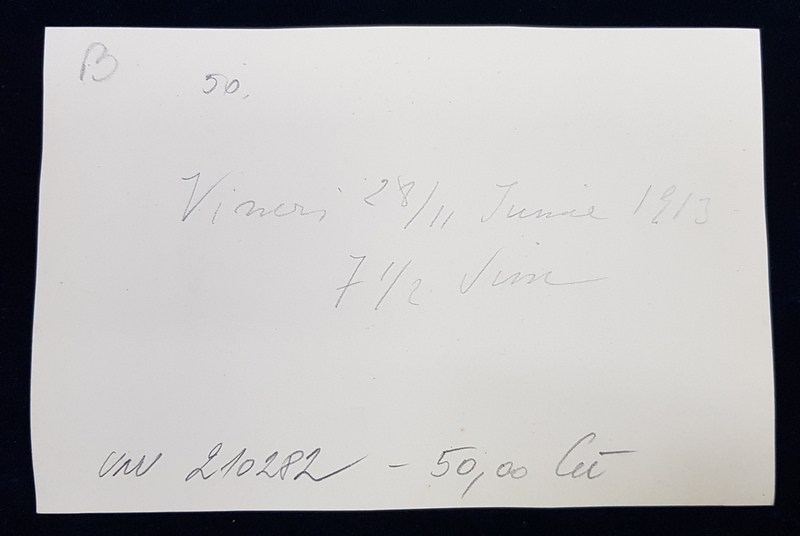 B
50.
Vineri 28/11 Iunie 1913
7 1/2
210282 - 50,00